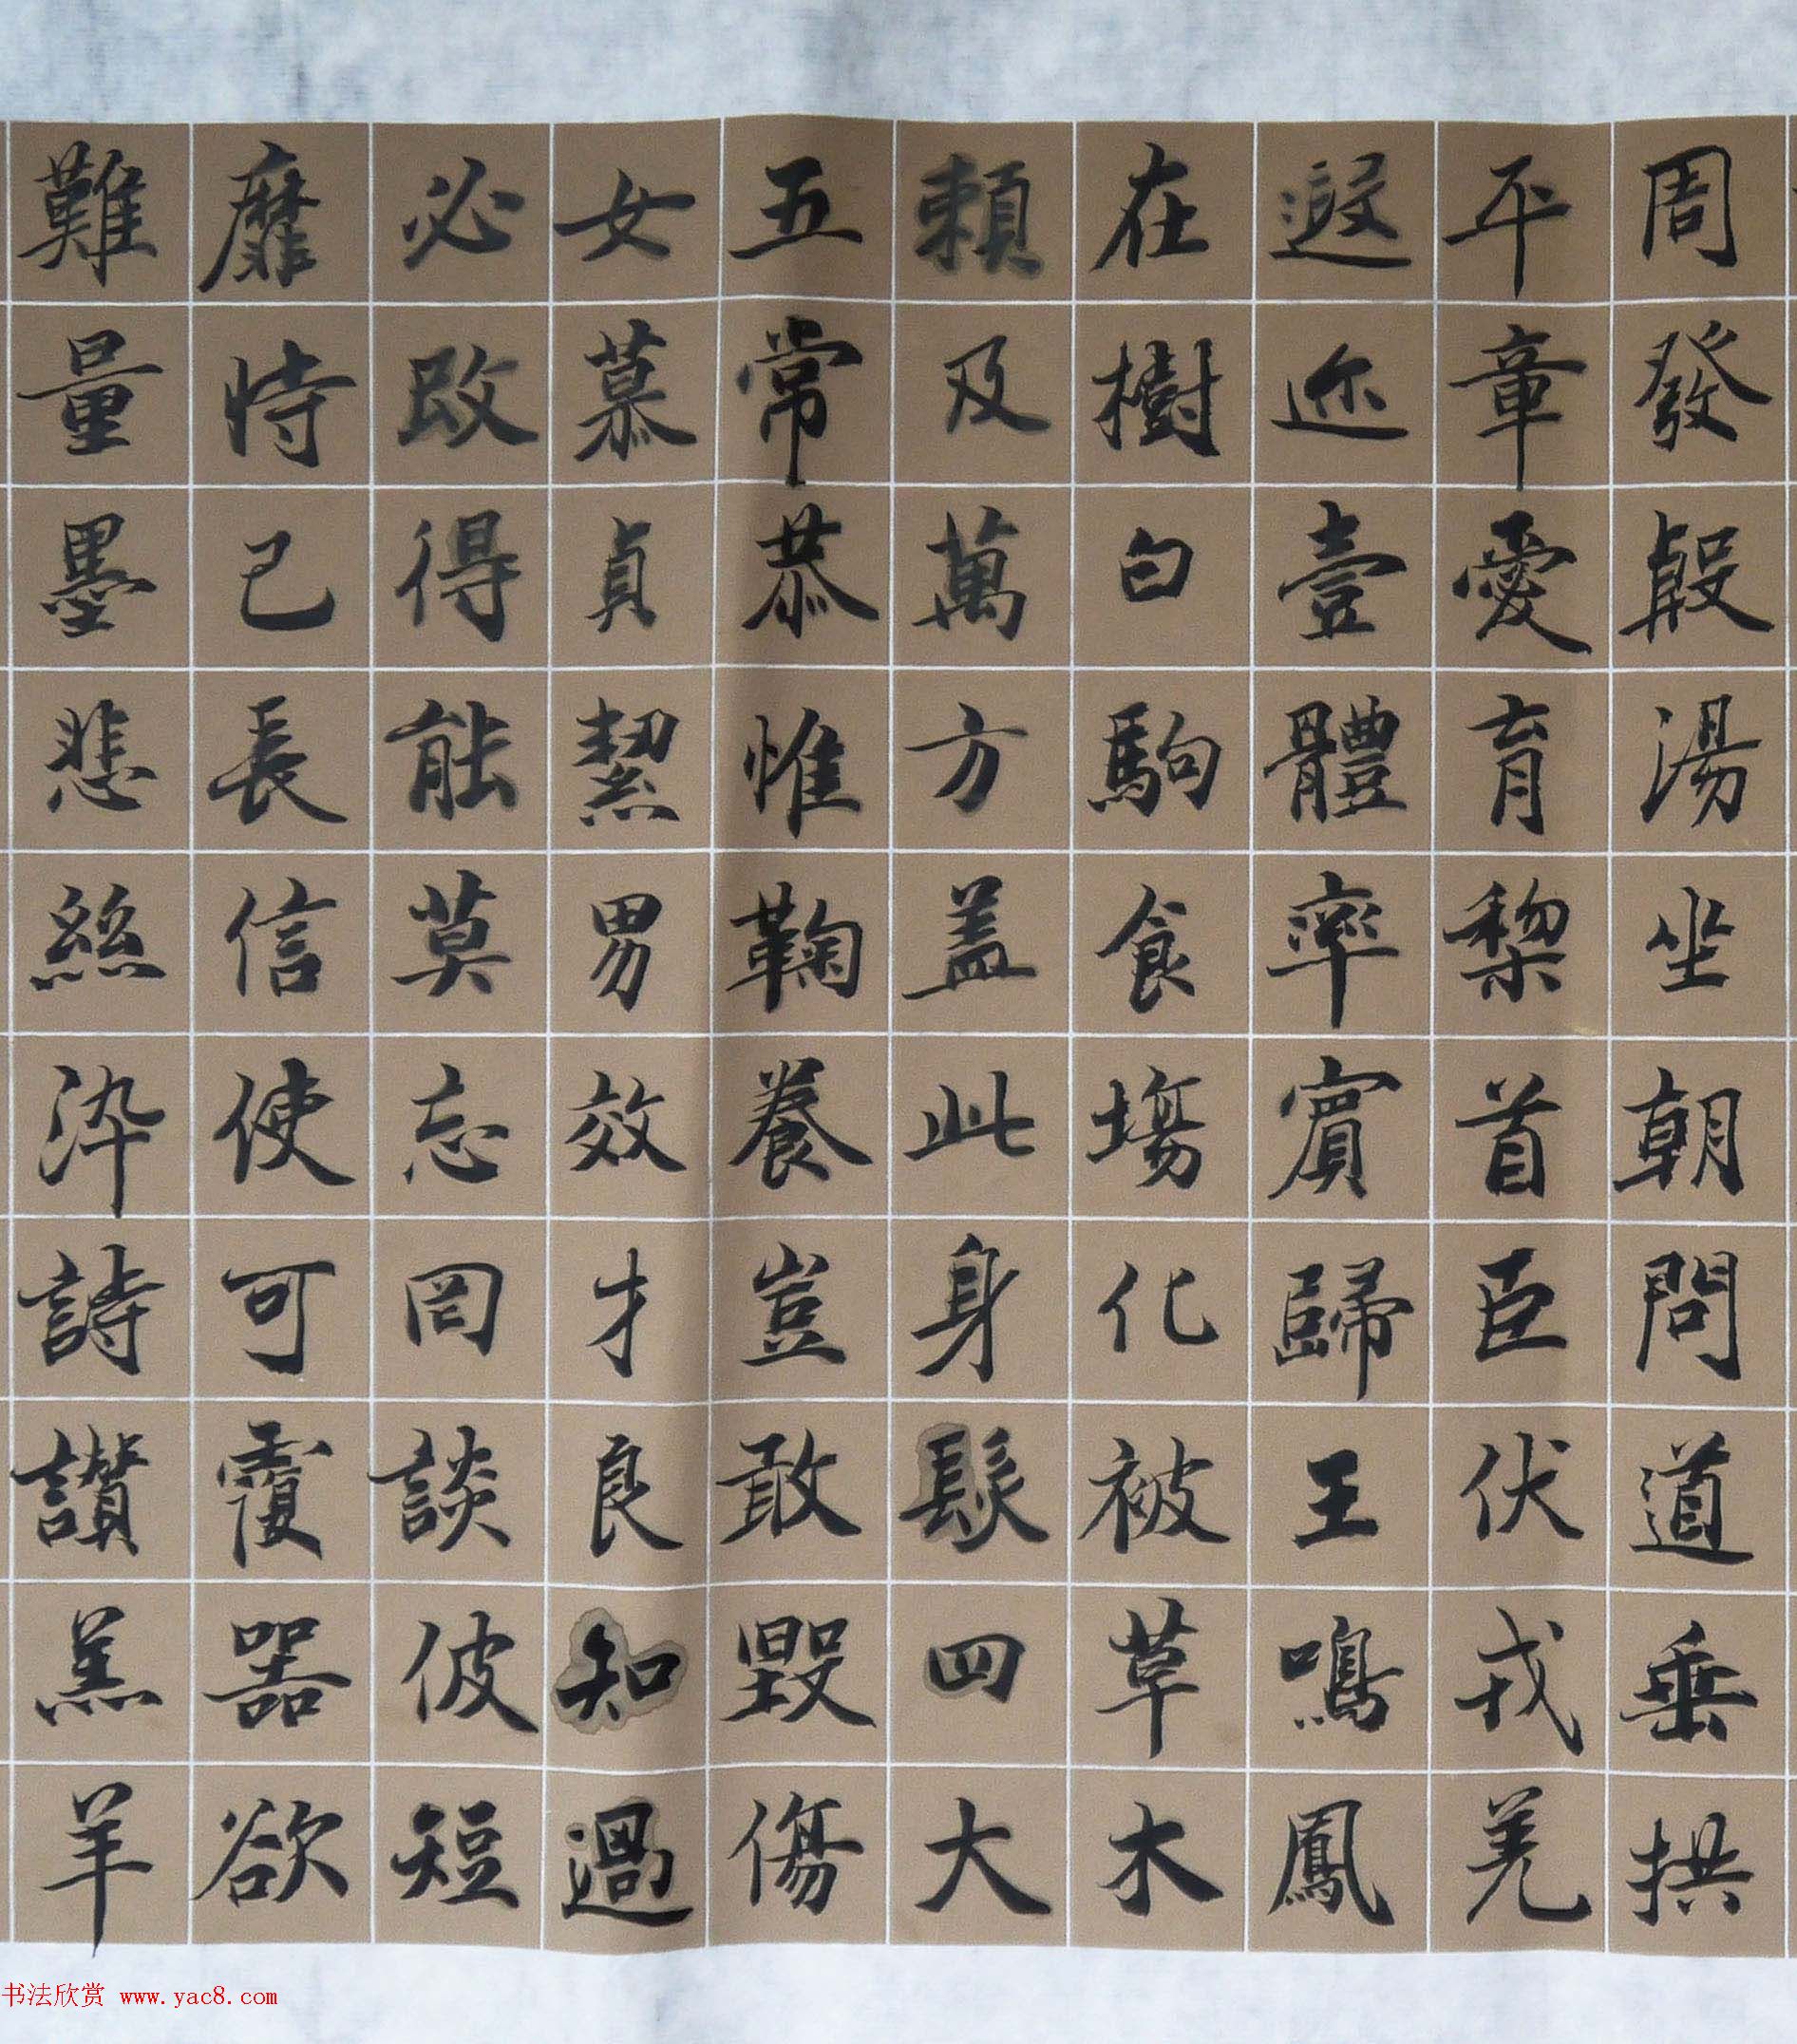 周發殷湯坐朝問道垂拱
平章愛育黎首臣伏戎羌
遐迩壹體率賓歸王鳴鳳
在樹白駒食場化被草木
賴及萬方盖此身髮四大
五常恭惟鞠養豈敢毀傷
女慕貞絜男效才良知過
必改得能莫忘罔談彼短
靡恃己長信使可覆器欲
難量墨悲絲染詩讃羔羊
书法欣赏 www.yac8.com